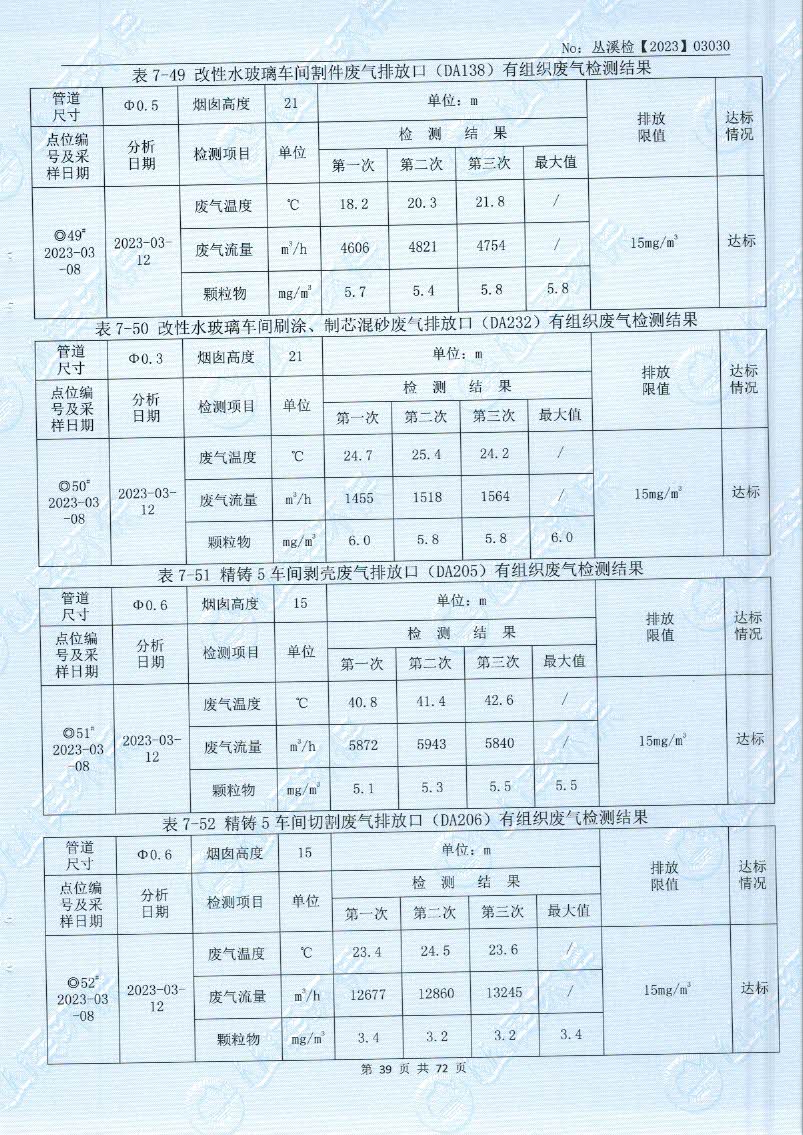 No: 丛溪检【2023】03030
表 7-49 改性水玻璃车间割件废气排放口（DA138）有组织废气检测结果
管道尺寸 Φ0.5 烟囱高度 21 单位：m 排放限值 达标情况
点位编号及采样日期 分析日期 检测项目 单位 检 测 结 果
第一次 第二次 第三次 最大值
◎49# 2023-03-08 2023-03-12 废气温度 ℃ 18.2 20.3 21.8 / 15mg/m³ 达标
废气流量 m³/h 4606 4821 4754 /
颗粒物 mg/m³ 5.7 5.4 5.8 5.8
表 7-50 改性水玻璃车间刷涂、制芯混砂废气排放口（DA232）有组织废气检测结果
管道尺寸 Φ0.3 烟囱高度 21 单位：m 排放限值 达标情况
点位编号及采样日期 分析日期 检测项目 单位 检 测 结 果
第一次 第二次 第三次 最大值
◎50# 2023-03-08 2023-03-12 废气温度 ℃ 24.7 25.4 24.2 / 15mg/m³ 达标
废气流量 m³/h 1455 1518 1564 /
颗粒物 mg/m³ 6.0 5.8 5.8 6.0
表 7-51 精铸 5 车间剥壳废气排放口（DA205）有组织废气检测结果
管道尺寸 Φ0.6 烟囱高度 15 单位：m 排放限值 达标情况
点位编号及采样日期 分析日期 检测项目 单位 检 测 结 果
第一次 第二次 第三次 最大值
◎51# 2023-03-08 2023-03-12 废气温度 ℃ 40.8 41.4 42.6 / 15mg/m³ 达标
废气流量 m³/h 5872 5943 5840 /
颗粒物 mg/m³ 5.1 5.3 5.5 5.5
表 7-52 精铸 5 车间切割废气排放口（DA206）有组织废气检测结果
管道尺寸 Φ0.6 烟囱高度 15 单位：m 排放限值 达标情况
点位编号及采样日期 分析日期 检测项目 单位 检 测 结 果
第一次 第二次 第三次 最大值
◎52# 2023-03-08 2023-03-12 废气温度 ℃ 23.4 24.5 23.6 / 15mg/m³ 达标
废气流量 m³/h 12677 12860 13245 /
颗粒物 mg/m³ 3.4 3.2 3.2 3.4
第 39 页 共 72 页